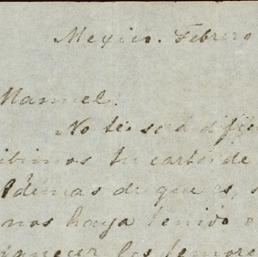 Mexico. Febrero
Manuel.
No te será difíc
ibimos tu carta de
Además de que es, s
nos haya tenido
los temore